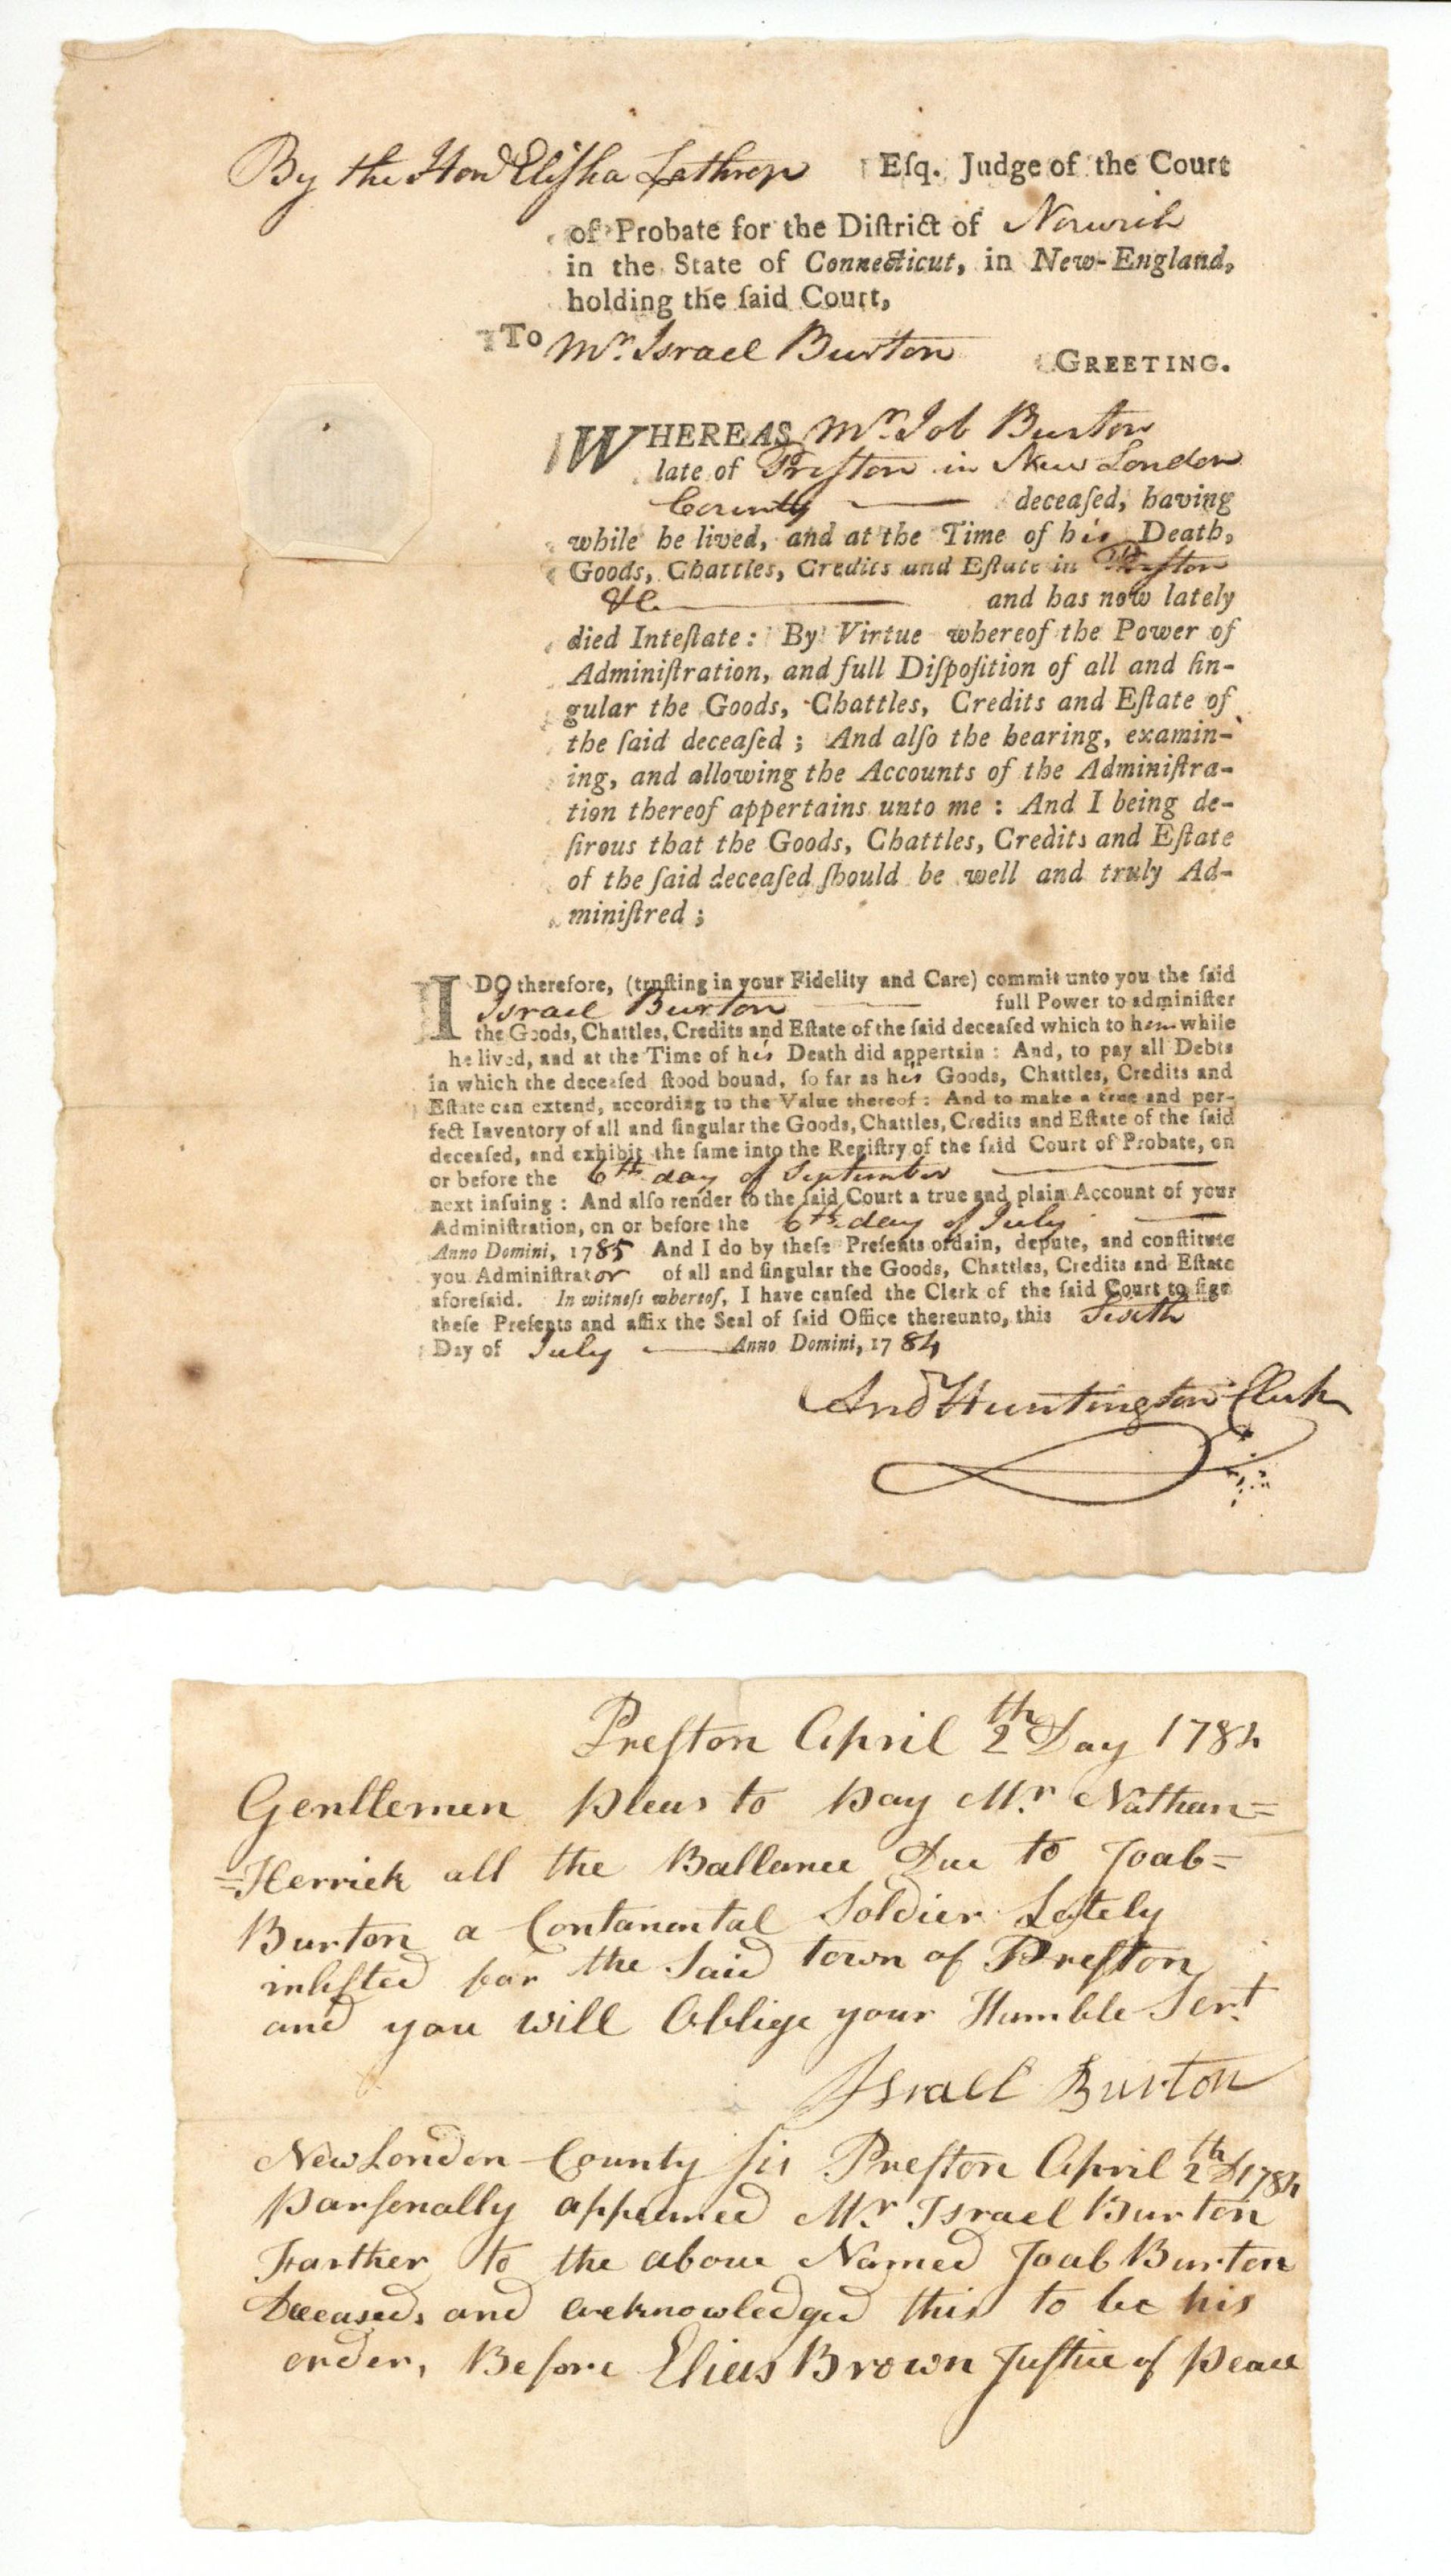 By the Hond Eliſha Lathrop Eſq. Judge of the Court
of Probate for the Diſtrict of Norwich
in the State of Connecticut, in New-England,
holding the ſaid Court,
To Mr. Israel Burton GREETING.
WHEREAS Mr. Job Burton
late of Preſton in New London
County deceaſed, having
while he lived, and at the Time of his Death,
Goods, Chattles, Credits and Eſtate in Preſton
&c. and has now lately
died Inteſtate: By Virtue whereof the Power of
Adminiſtration, and full Diſpoſition of all and ſin-
gular the Goods, Chattles, Credits and Eſtate of
the ſaid deceaſed; And alſo the hearing, examin-
ing, and allowing the Accounts of the Adminiſtra-
tion thereof appertains unto me: And I being de-
ſirous that the Goods, Chattles, Credits and Eſtate
of the ſaid deceaſed ſhould be well and truly Ad-
miniſtred;
I DO therefore, (truſting in your Fidelity and Care) commit unto you the ſaid
Israel Burton full Power to adminiſter
the Goods, Chattles, Credits and Eſtate of the ſaid deceaſed which to him while
he lived, and at the Time of his Death did appertain: And, to pay all Debts
in which the deceaſed ſtood bound, ſo far as his Goods, Chattles, Credits and
Eſtate can extend, according to the Value thereof: And to make a true and per-
fect Inventory of all and ſingular the Goods, Chattles, Credits and Eſtate of the ſaid
deceaſed, and exhibit the ſame into the Regiſtry of the ſaid Court of Probate, on
or before the 6th day of September
next inſuing: And alſo render to the ſaid Court a true and plain Account of your
Adminiſtration, on or before the 6th day of July
Anno Domini, 1785 And I do by theſe Preſents ordain, depute, and conſtitute
you Adminiſtrator of all and ſingular the Goods, Chattles, Credits and Eſtate
aforeſaid. In witneſs whereof, I have cauſed the Clerk of the ſaid Court to ſign
theſe Preſents and affix the Seal of ſaid Office thereunto, this Sixth
Day of July Anno Domini, 1784
And Huntington Clerk
Preſton April 2th Day 1784
Gentlemen pleas to pay Mr. Nathan=
=Herrick all the Ballance Due to Joab=
Burton a Contanental Soldier Lately
inliſted for the Said town of Preſton
and you will Oblige your Humble Sert.
Israel Burton
New London County ſs Preſton April 2th D 1784
parſonally appeared Mr. Israel Burton
Farther to the above Named Joab Burton
Deceased, and acknowledged this to be his
order, Before Elias Brown Juſtice of peace